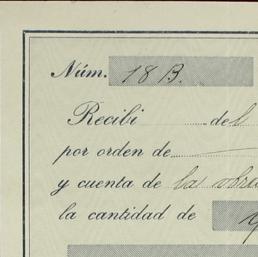 Núm. 18 B.
Recibí del
por orden de
y cuenta de la obra
la cantidad de